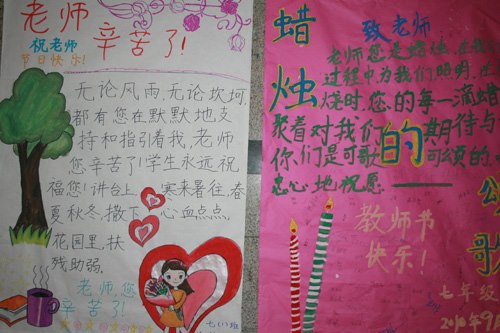 老师
辛苦了!
祝老师
节日快乐!
无论风雨,无论坎坷,
都有您在默默地支
持和指引着我,老师
您辛苦了!学生永远祝
福您!讲台上,寒来暑往,春
夏秋冬,撒下心血点点.
花园里,扶
残助弱.
老师,您
辛苦了!
七(1)班
蜡烛的
公
歌
致老师
老师您是蜡烛,在我们
过程中为我们照明,
烧时,您的每一滴蜡
聚着对我们的期待与
你们是可歌可颂的
忠心地祝愿——
教师节
快乐!
七年级
2010年9